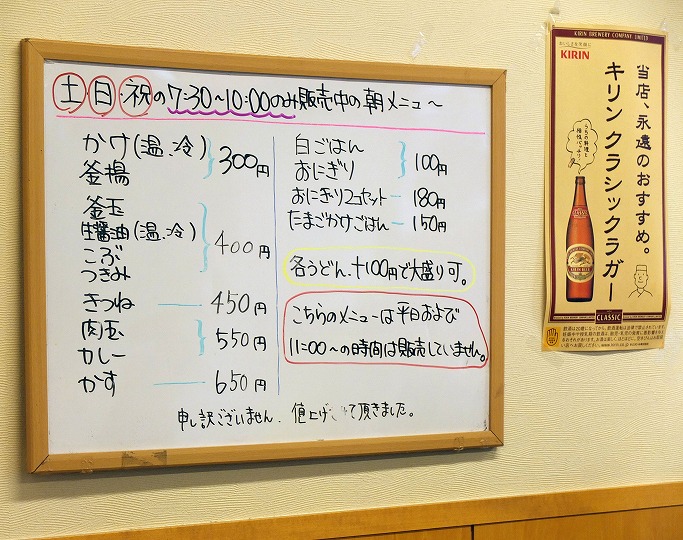 土日・祝の7:30~10:00のみ販売中の朝メニュー
かけ(温、冷)
釜揚
300円
釜玉
生醤油(温、冷)
こぶ
つきみ
400円
きつね — 450円
肉玉
カレー
550円
かす — 650円
白ごはん
おにぎり
100円
おにぎり2コセット — 180円
たまごかけごはん — 150円
各うどん、+100円で大盛り可。
こちらのメニューは平日および
11:00~の時間は販売していません。
申し訳ございません、値上げさせて頂きました。
KIRIN BREWERY COMPANY, LIMITED
おいしさを笑顔に
KIRIN
当店、永遠のおすすめ。
キリン クラシックラガー
うちの料理と
相性バッチリ!
CLASSIC